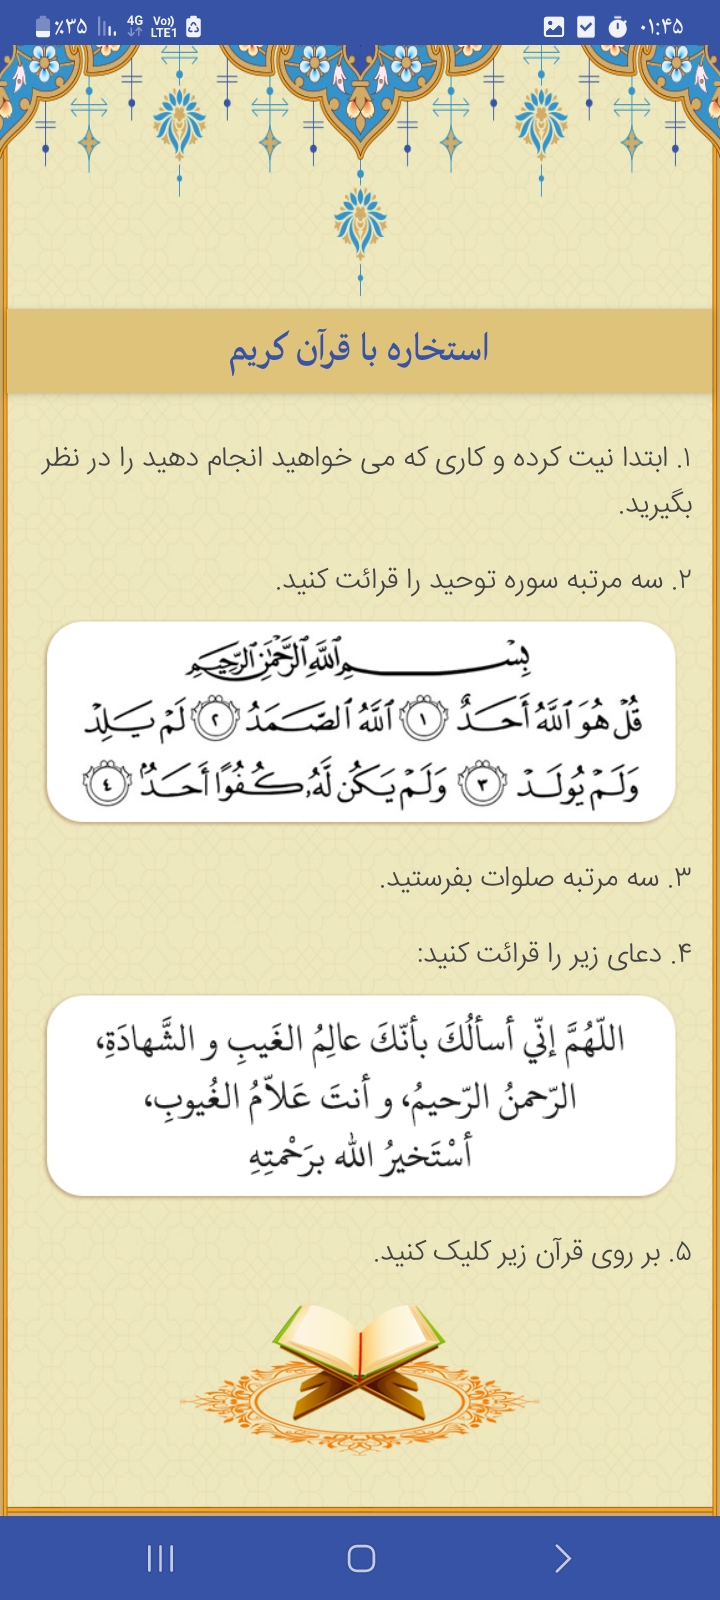 ٪۳۵ 4G Vo)) LTE1 ۰۱:۴۵
استخاره با قرآن کریم
۱. ابتدا نیت کرده و کاری که می خواهید انجام دهید را در نظر
بگیرید.
۲. سه مرتبه سوره توحید را قرائت کنید.
بِسْمِ ٱللَّهِ ٱلرَّحْمَٰنِ ٱلرَّحِيمِ
قُلْ هُوَ ٱللَّهُ أَحَدٌ ١ ٱللَّهُ ٱلصَّمَدُ ٢ لَمْ يَلِدْ
وَلَمْ يُولَدْ ٣ وَلَمْ يَكُن لَّهُۥ كُفُوًا أَحَدٌۢ ٤
۳. سه مرتبه صلوات بفرستید.
۴. دعای زیر را قرائت کنید:
اللّهُمَّ إنّي أسألُكَ بأنّكَ عالِمُ الغَيبِ و الشَّهادَةِ،
الرّحمنُ الرّحيمُ، و أنتَ عَلاّمُ الغُيوبِ،
أسْتَخيرُ الله برَحْمتِهِ
۵. بر روی قرآن زیر کلیک کنید.